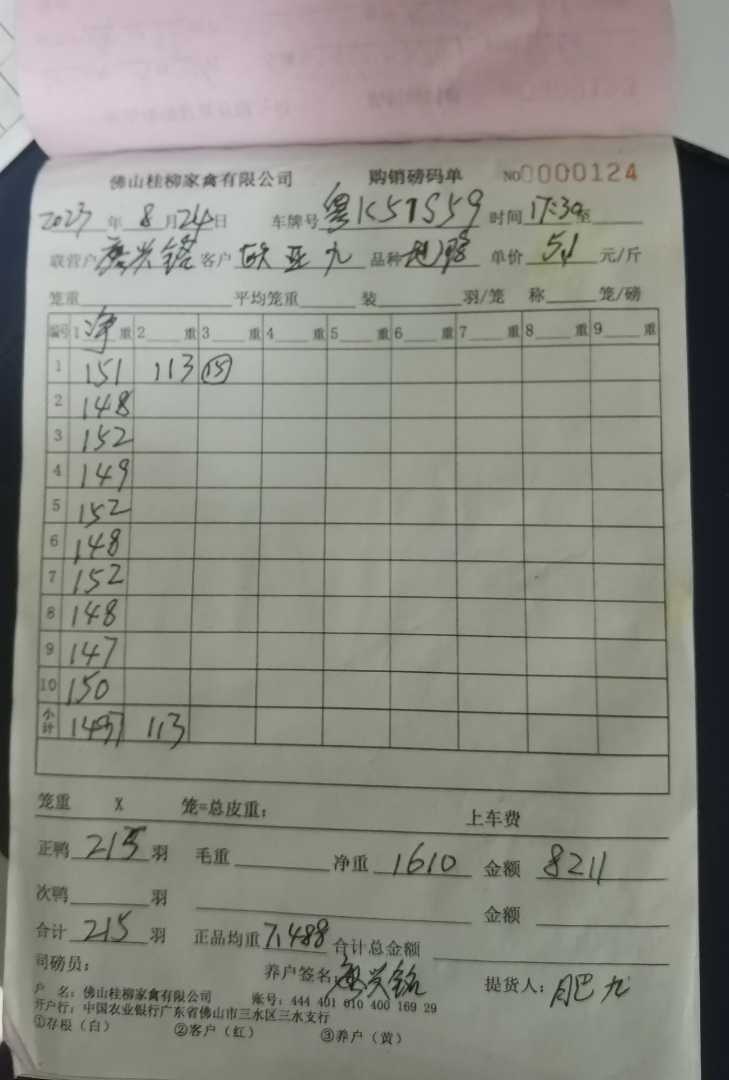 佛山桂柳家禽有限公司 购销磅码单 NO 0000124
2023年8月24日 车牌号粤K57S59 时间17:30至
联营户 兴铭 客户 亚九 品种 鸭 单价5.1元/斤
笼重 平均笼重 装 羽/笼 称 笼/磅
编号 1净重 2 重 3 重 4 重 5 重 6 重 7 重 8 重 9 重
1 151 113 (15)
2 148
3 152
4 149
5 152
6 148
7 152
8 148
9 147
10 150
小计 1497 113
笼重 X 笼=总皮重: 上车费
正鸭215羽 毛重 净重1610 金额8211
次鸭 羽 金额
合计215羽 正品均重7.488 合计总金额
司磅员: 养户签名: 兴铭 提货人:肥九
户 名:佛山桂柳家禽有限公司 账号:444 401 010 400 169 29
开户行:中国农业银行广东省佛山市三水区三水支行
①存根(白) ②客户(红) ③养户(黄)